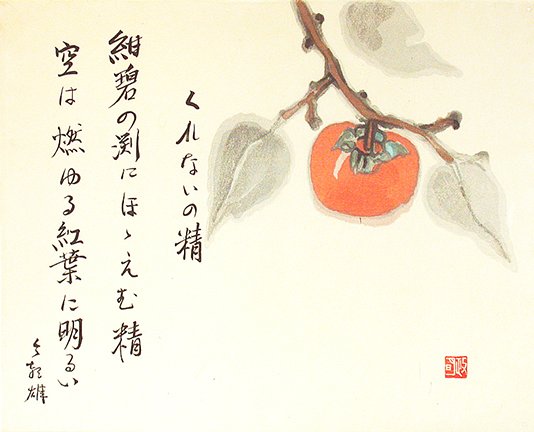 くれないの精
紺碧の渕にほゝえむ精
空は燃ゆる紅葉に明るい